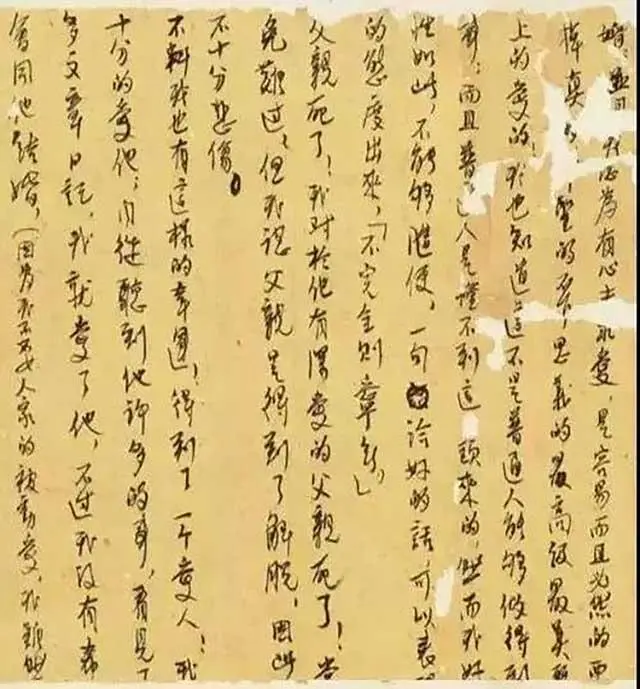 婚,並且我認為有心去求愛,是容易而且必然的要
掉真 聖的不可思議的最高級最美麗
上的愛的!我也知道這不是普通人能夠做得到
事;而且普通人是懂不到這一頭來的,然而我好
性如此,不能夠隨便,一句恰好的話,可以表現
的態度出來,「不完全則寧無」
父親死了!我對於他有深愛的父親死了!當
免難過,但我認父親是得到了解脫,因此
不十分悲傷。
不料我也有這樣的幸運!得到了一個愛人!我
十分的愛他;自從聽到他許多的事,看見了
多文章日記,我就愛了他,不過我沒有希
會同他結婚,(因為我不要人家的被動愛,我雖然